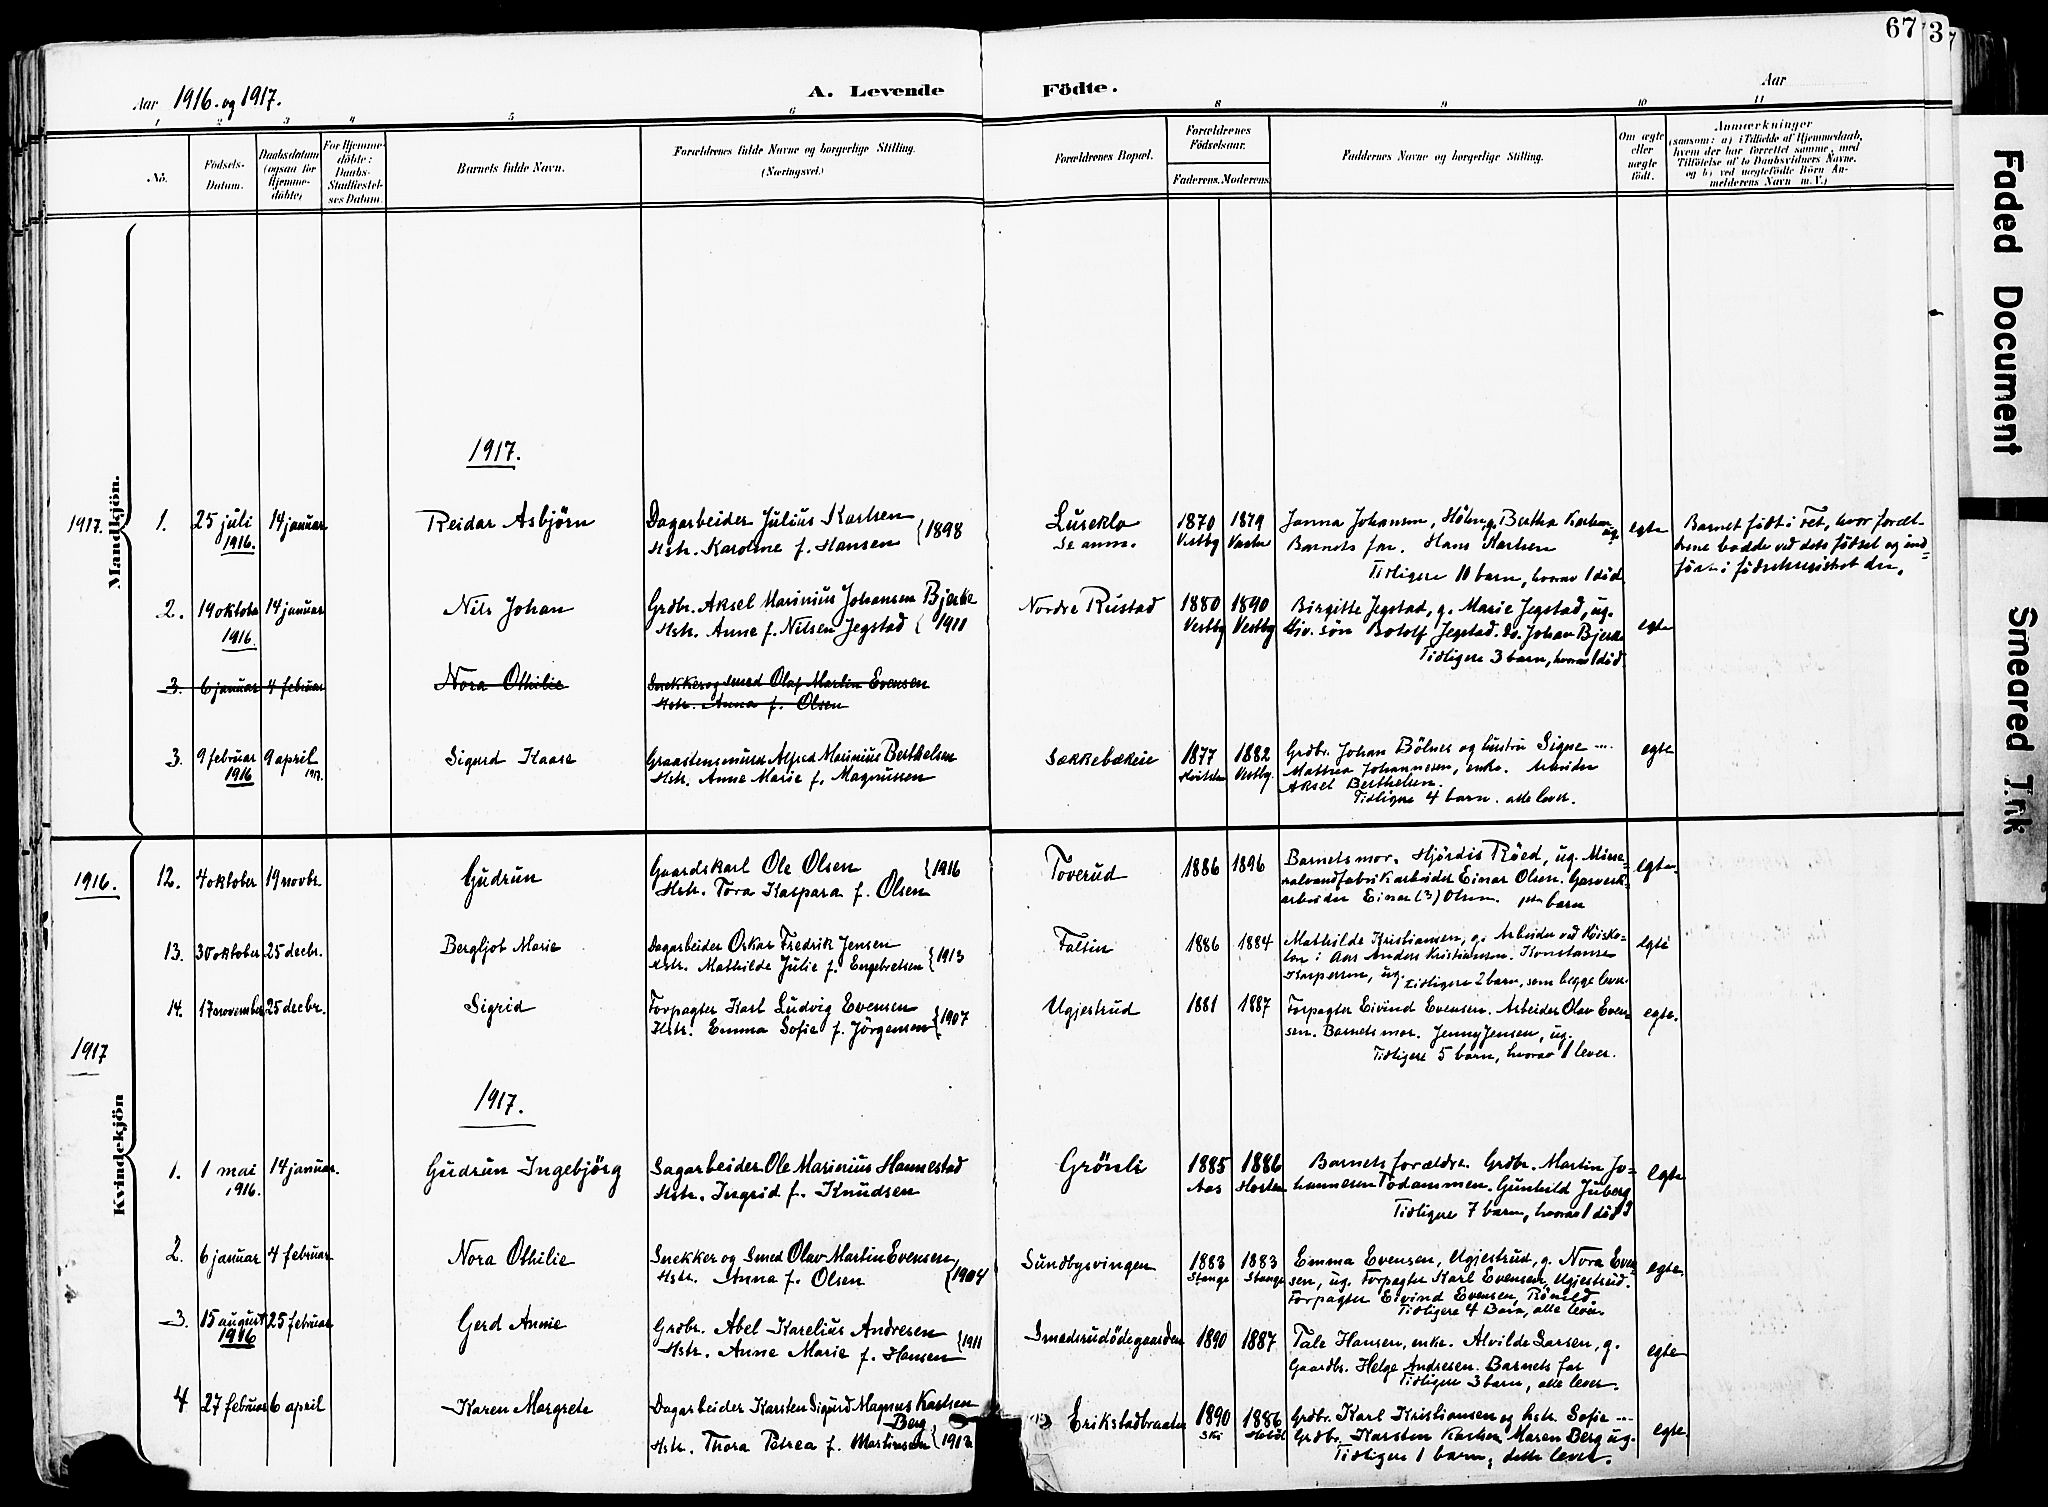 67
3
Aar 1916. og 1917.
A. Levende Födte.
Aar
1 2 3 4 5 6 8 9 10 11
No.
Födsels-
Datum.
Daabsdatum
(ogsaa for
Hjemme-
döbte)
For Hjemme-
döbte:
Daabs-
Stadfæstel-
ses Datum.
Barnets fulde Navn.
Forældrenes fulde Navne og borgerlige Stilling.
(Næringsvei.)
Forældrenes Bopæl.
Forældrenes
Födselsaar.
Faderens. Moderens.
Faddernes Navne og borgerlige Stilling.
Om ægte
eller
uægte
födt.
Anmærkninger
(saasom: a) i Tilfælde af Hjemmedaab,
hvem der har forrettet samme, med
Tilföielse af to Daabsvidners Navne.
og b) ved uægtefödte Börn An-
melderens Navn m. V.)
Faded Document
Smeared Ink
Mandkjön.
1917.
1917.
1. 25 juli 1916. 14 januar
Reidar Asbjörn
Dagarbeider Julius Karlsen
Hstr. Karoline f. Hansen {1898
Lusekla
Se anm.
1870 Vestby 1879
Janna Johansen, Hölen, g. Bertha Karlsen
Barnets far. Hans Karlsen
Tidligere 10 barn, hvorav 1 död
egte
Barnet födt i Fet, hvor foræl-
drene bodde ved dets födsel og ind-
fört i födselsregistret der.
2. 19 oktobr 1916. 14 januar
Nils Johan
Grdbr. Aksel Marinius Johansen Bjerke
Hstr. Anne f. Nilsen Jegstad {1911
Nordre Rustad
1880 Vestby 1890 Vestby
Birgitte Jegstad, g. Marie Jegstad, ug.
Gjv. sön Botolf Jegstad. do. Johan Bjerke
Tidligere 3 barn, hvorav 1 död
egte
3. 6 januar 4 februar
Nora Othilie
Snekker og smed Olaf Martin Evensen
Hstr. Anna f. Olsen
3. 9 februar 1916 9 april 1917.
Sigurd Kaare
Graastensmurer Alfred Marinius Berthelsen
Hstr. Anne Marie f. Magnussen
Sækkebækeie
1877 1882 Vestby.
Grdbr. Johan Bölnes og hustru Signe ---.
Mathea Johannessen, enke. Arbeider
Aksel Berthelsen.
Tidligere 4 barn. alle lever.
egte
1916.
12. 4 oktober 19 novbr.
Gudrun
Gaardskarl Ole Olsen
Hstr. Tora Kaspara f. Olsen {1916
Toverud
1886 1896
Barnets mor. Hjördis Röed, ug. Mine-
ralvandfabrikarbeider Einar Olsen. Gasverk-
arbeider Einar (3) Olsen. 1ste barn
egte.
13. 30 oktober 25 decbr.
Bergljot Marie
Dagarbeider Oskar Fredrik Jensen
Hstr. Mathilde Julie f. Engebretsen {1913
Faltin
1886 1884
Mathilde Kristiansen, g. Arbeider ved Höisko-
len i Aas Anders Kristiansen. Konstanse
Kaspersen, ug. Tidligere 2 barn, som begge lever.
egte
14. 17 november 25 decbr.
Sigrid
Forpagter Karl Ludvig Evensen
Hstr. Emma Sofie f. Jörgensen {1907
Ugjestrud
1881 1887
Forpagter Eivind Evensen. Arbeider Olav Even-
sen. Barnets mor. Jenny Jensen, ug.
Tidligere 5 barn, hvorav 1 lever.
egte.
1917
1917.
Kvindekjön
1. 1 mai 1916. 14 januar.
Gudrun Ingebjörg
Sagarbeider Ole Marinius Hannestad
Hstr. Ingrid f. Knudsen
Grönli
1885 Aas 1886
Barnets forældre. Grdbr. Martin Jo-
hannesen Dodammen. Gunhild Juberg
Tidligere 7 barn, hvorav 1 död
egte
2. 6 januar 4 februar
Nora Othilie
Snekker og Smed Olav Martin Evensen
Hstr. Anna f. Olsen {1904
Sundbysvingen
1883 Stange 1883 Stange
Emma Evensen, Ugjestrud, g. Nora Even-
sen, ug. Forpagter Karl Evensen, Ugjestrud.
Forpagter Eivind Evensen,
Tidligere 4 Barn, alle lever.
egte.
3. 15 august 1916 25 februar
Gerd Annie
Grdbr. Abel Karelius Andresen
Hstr. Anne Marie f. Hansen {1911
Smedsrudödegaarden
1890 1887
Tale Hansen, enke. Alvilde Larsen, g.
Gaardbr. Helge Andresen. Barnets far
Tidligere 3 barn, alle lever.
egte
4 27 februar 6 april
Karen Margrete
Dagarbeider Karsten Sigurd Magnus Karlsen
Berg
Hstr. Thora Petrea f. Martinsen {1913
Erikstadbraaten
1890 Ski 1886
Grdbr. Karl Kristiansen og hstr. Sofie ---
Grdbr. Karsten Karlsen Maren Berg ug.
Tidligere 1 barn, dette lever.
egte